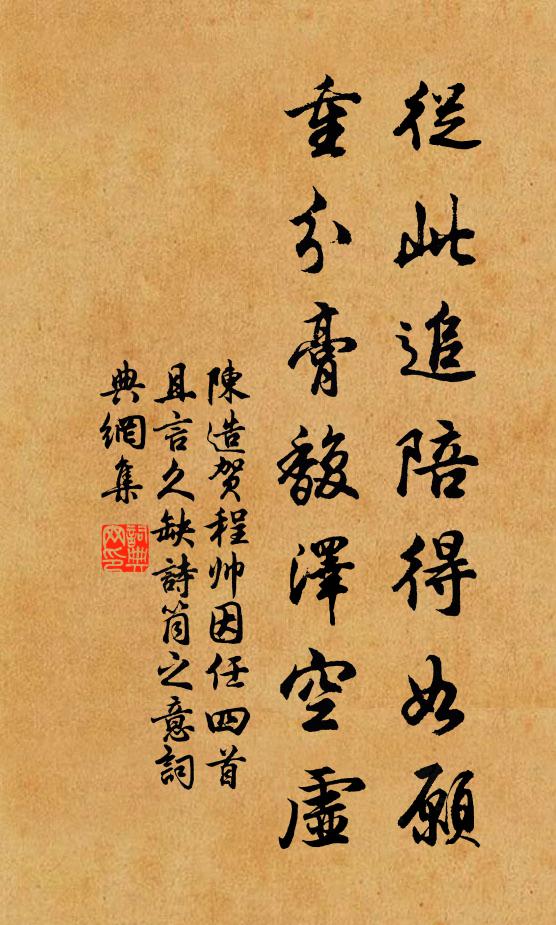 從此追陪得如願
重分膏馥澤空虛
陳造賀程帅因任四首
且言久缺詩筒之意詞
典網集
詞典网印